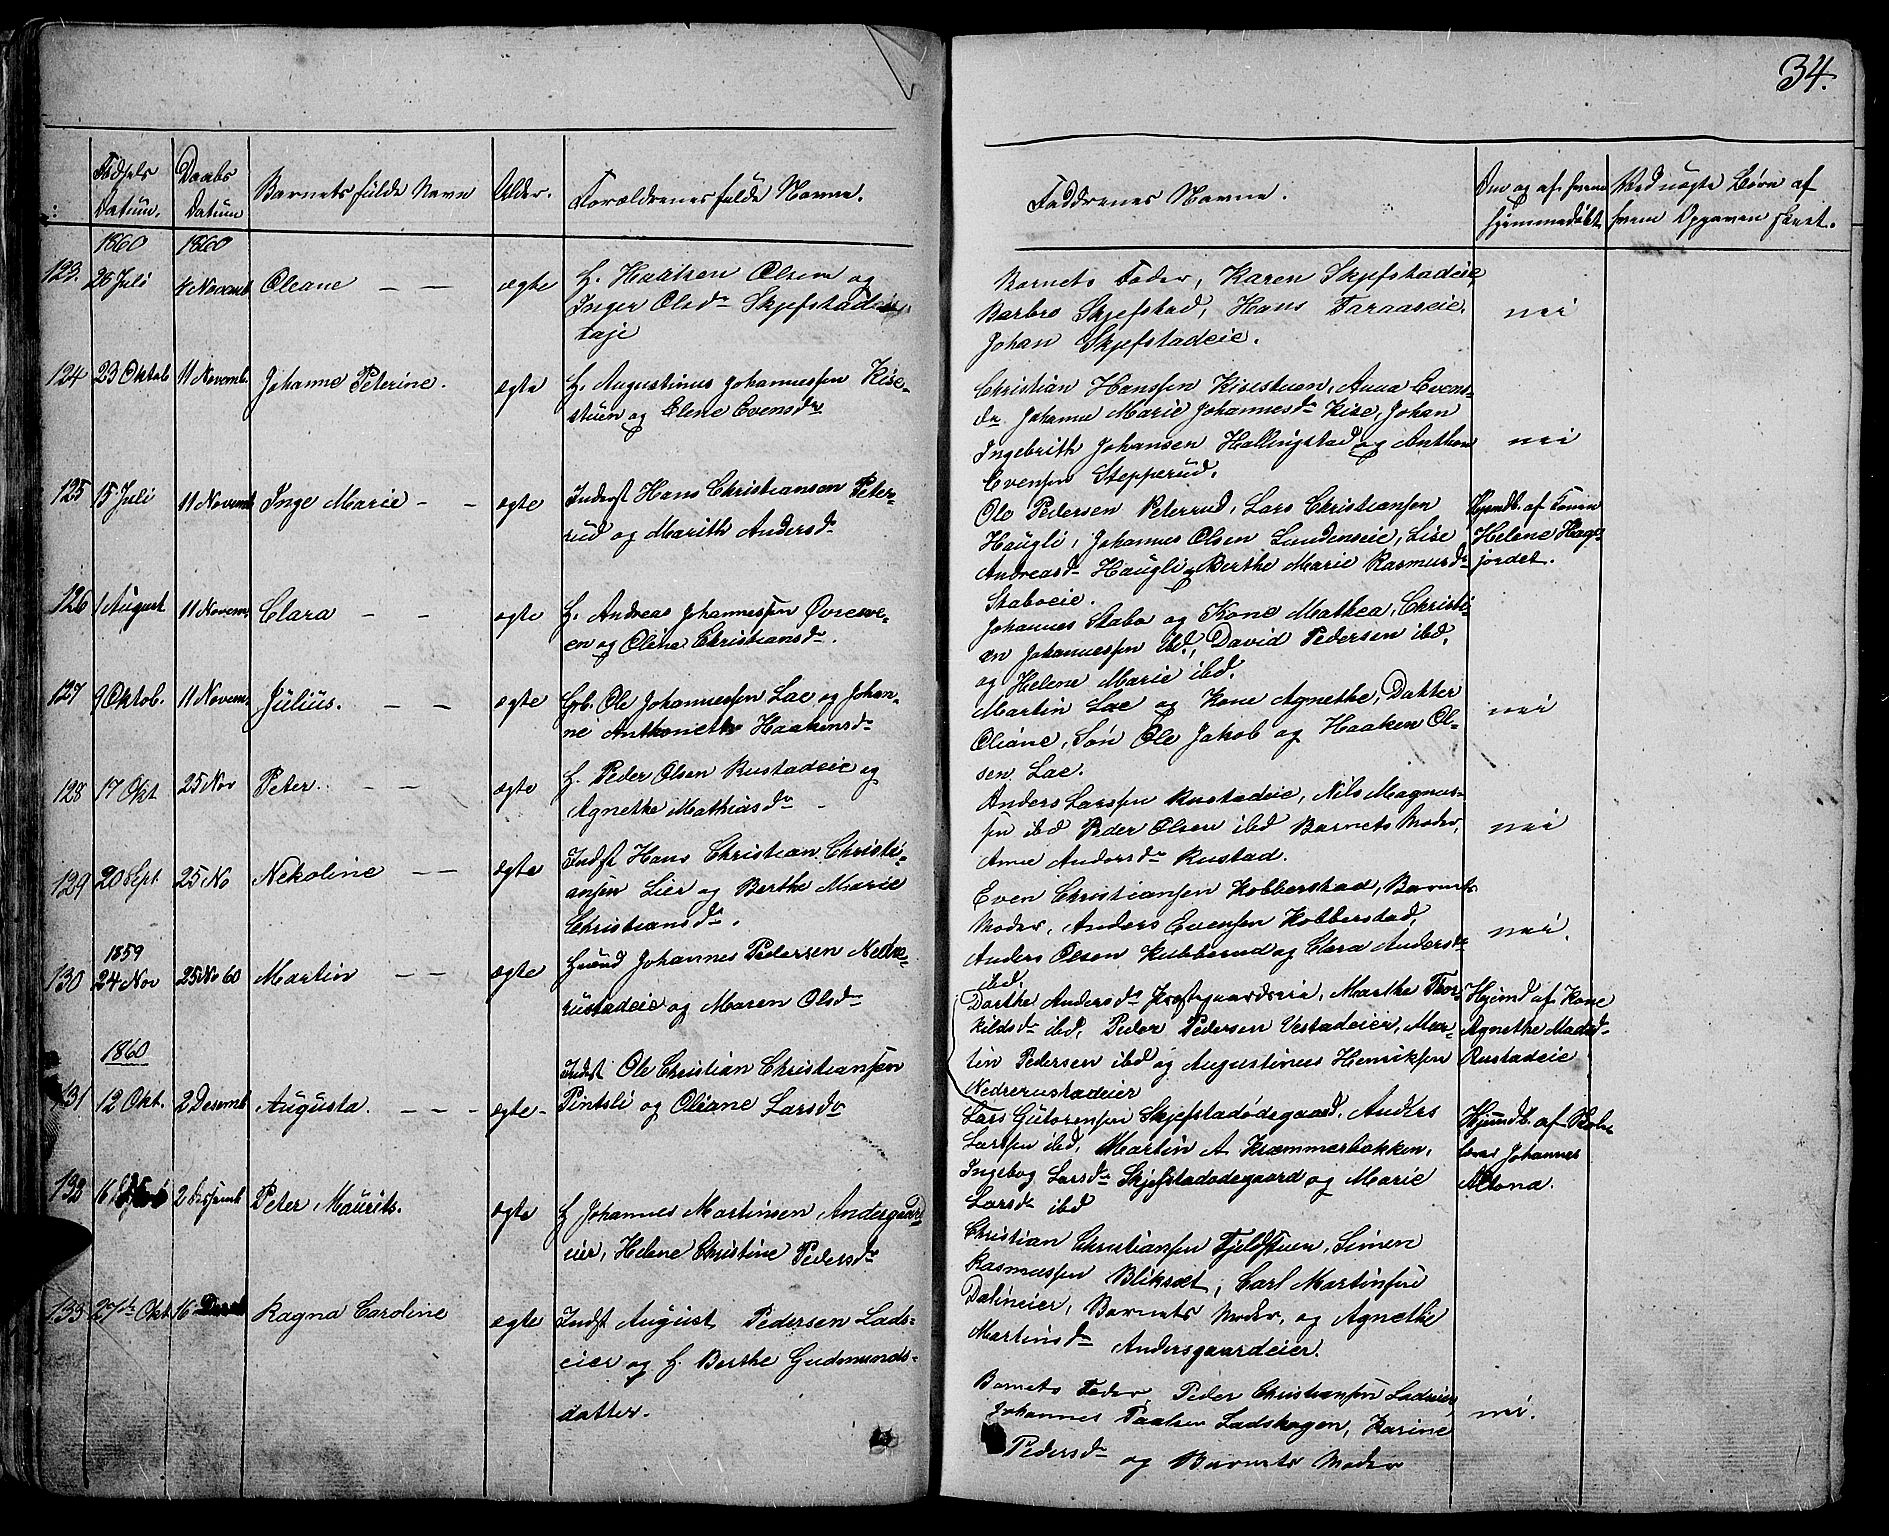 34.
Fødsels Datum.
Daabs Datum
Barnets fulde Navn
Alder.
Forældrenes fulde Navne.
Faddrenes Navne.
Om og af hvem hjemmedøbt
Ved uægte Børn af hvem Opgaven skeet.
1860 1860
123. 26 Juli 4 Novemb Oleane — — ægte
Haaken Olsen og
Inger Olsdr Skjefstadeie
taje
Barnets Fader, Karen Skjefstadeie,
Barbro Skjefstad, Hans Taraaseie,
Johan Skjefstadeie.
nei
124 23 Oktob 11 Novemb. Johanne Peterine. ægte
Augustinus Johannessen Kise-
stuen og Elene Evensdr
Christian Hanssen Kisestuen, Anna Evens-
dr Johanne Marie Johannesdr Kise, Johan
Ingebrith Johansen Hallingstad og Anthon
Evensen Stepperud.
nei
125 15 Juli 11 Novemb Inge Marie - - ægte
Inderst Hans Christiansen Peter-
rud og Marith Andersdr
Ole Pedersen Peterrud, Lars Christiansen
Haugli, Johannes Olsen Lundenseie, Lise
Andreasdr Haugli, Berthe Marie Rasmusdr
Staboeie.
Hjemdb. af Konen
Helene Hage-
jordet.
126 1 August 11 Novem Clara — - ægte
Andreas Johannessen Øvreeve-
en og Olena Christiansdr.
Johannes Stabo og Kone Mathea, Christi-
an Johannessen ibd, David Pedersen ibd,
og Helene Marie ibd.
127 9 Oktob. 11 Novem. Julius. — — ægte
Gbr. Ole Johannessen Lae og Johan-
ne Anthonette Haakensdr
Martin Lae og Kone Agnethe, Datter
Oliane, Søn Ole Jakob og Haaken Ol-
sen Lae.
nei
128 17 Okt 25 Nov Peter. — — ægte
Peder Olsen Rustadeie og
Agnethe Mathiasdr
Anders Larssen Rustadeie, Nils Magnus-
sen ibd Peder Olsen ibd Barnets Moder,
Anne Andersdr Rustad.
nei
129 20 Sept 25 No Nekoline — — ægte
Indst Hans Christian Christi-
ansen Lier og Berthe Marie
Christiansdr.
Even Christiansen Kobberstad, Barnets
Moder, Anders Evensen Kobberstad,
Anders Olsen Kubberud og Clara Andersdr
ibd.
nei.
1859
130 24 Nov 25 No 60 Martin — — ægte
Johannes Pedersen Nedre-
rustadeie og Maren Olsdr
Dorthe Andersdr Præstgaardseie, Marthe Thor-
kildsdr ibd, Peder Pedersen Vestadeier, Mar-
tin Pedersen ibd og Augustinus Henriksen
Nedrerustadeier
Hjemd af Kone
Agnethe Madsd-
Rustadeie
1860
131 12 Okt. 2 Desemb Augusta. — — - ægte -
Indst Ole Christian Christiansen
Pintsli og Oliane Larsdr
Lars Gutormsen Skjefstadødegaard, Anders
Larssen ibd, Martin A Kræmmerbakken,
Ingebog Larsdr Skjefstadødegaard og Marie
Larsdr ibd
Hjemdb. af Skole
lærer Johannes
Altona.
132 16 2 Desemb Peter Maurits. ægte
Johannes Martinsen Andersgaard
eier, Helene Christine Pedersdr
Christian Christiansen Fjeldstuen, Simen
Rasmussen Bliksæt, Carl Martinsen
Dalineier, Barnets Moder, og Agnethe
Martinsdr Andersgaardeier.
133 27de Okt 16 Ragna Caroline ægte
Indst August Pedersen Lads-
eier og Berthe Gudmunds-
datter.
Barnets Fader, Peder Christiansen Ladseier,
Johannes Paalsen Ladshagen, Karine
Pedersdr og Barnets Moder
nei.